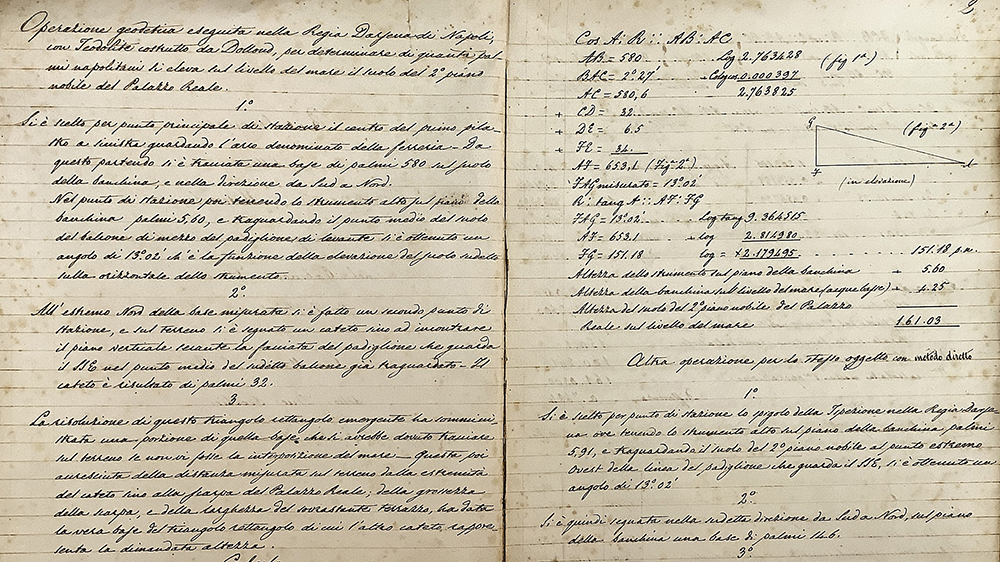 Operazione geodetica eseguita nella Regia Darsena di Napoli,
con Teodolite costrutto da Dollond, per determinare di quanti pal-
mi napolitani si eleva sul livello del mare il suolo del 2º piano
nobile del Palazzo Reale.
1º
Si è scelto per punto principale di stazione il centro del primo pila-
stro a sinistra guardando l'arco denominato della ferreria - Da
questo partendo si è tracciata una base di palmi 580 sul suolo
della banchina, e nella direzione da Sud a Nord.
Nel punto di stazione poi tenendo lo strumento alto sul piano della
banchina palmi 5,60, e traguardando il punto medio del suolo
del balcone di mezzo del padiglione di levante si è ottenuto un
angolo di 13º.02' ch'è la funzione della elevazione del suolo sudetto
sulla orizzontale dello strumento.
2º
All'estremo Nord della base misurata si è fatto un secondo punto di
stazione, e sul terreno si è segnato un cateto sino ad incontrare
il piano verticale secante la facciata del padiglione che guarda
il SSE nel punto medio del sudetto balcone già traguardato - Il
cateto è risultato di palmi 32.
3
La risoluzione di questo triangolo rettangolo emergente ha sommini-
strata una porzione di quella base che si avrebbe dovuto tracciare
sul terreno se non vi fosse la interposizione del mare - Questa poi
accresciuta della distanza misurata sul terreno dalla estremità
del cateto sino alla scarpa del Palazzo Reale, della grossezza
della scarpa, e della larghezza del sovrastante terrazzo, ha data
la vera base del triangolo rettangolo di cui l'altro cateto rappre-
senta la dimandata altezza.
2
Cos A : R :: AB : AC
AB = 580 Log 2.763428 (fig 1ª)
BAC = 2º27' - Log cos 0.000397
AC = 580,6 2.763825
+ CD = 32.
+ DE = 6.5
+ FE = 34.
AF = 653,1 (Fig-2ª)
FAG misurato = 13º.02'
R : tang A :: AF : FG
FAG = 13º.02' Log tang 9.364515
AF = 653.1 + log 2.814980
FG = 151.18 log = +2.179495 151.18 p.n.
Altezza dello strumento sul piano della banchina + 5,60
Altezza della banchina sul livello del mare (acque basse) + 4.25
Altezza del suolo del 2º piano nobile del Palazzo
Reale sul livello del mare 161.03
G (fig-2ª)
F A
(in elevazione)
Altra operazione per lo stesso oggetto con metodo diretto
1º
Si è scelto per punto di stazione lo spigolo della Ispezione nella Regia Darse-
na ove tenendo lo strumento alto sul piano della banchina palmi
5,91, e traguardando il suolo del 2º piano nobile al punto estremo
Ovest della linea del padiglione che guarda il SSE, si è ottenuto un
angolo di 13º.02'
2º
Si è quindi segnata nella sudetta direzione da Sud a Nord, sul piano
della banchina una base di palmi 146.
3º